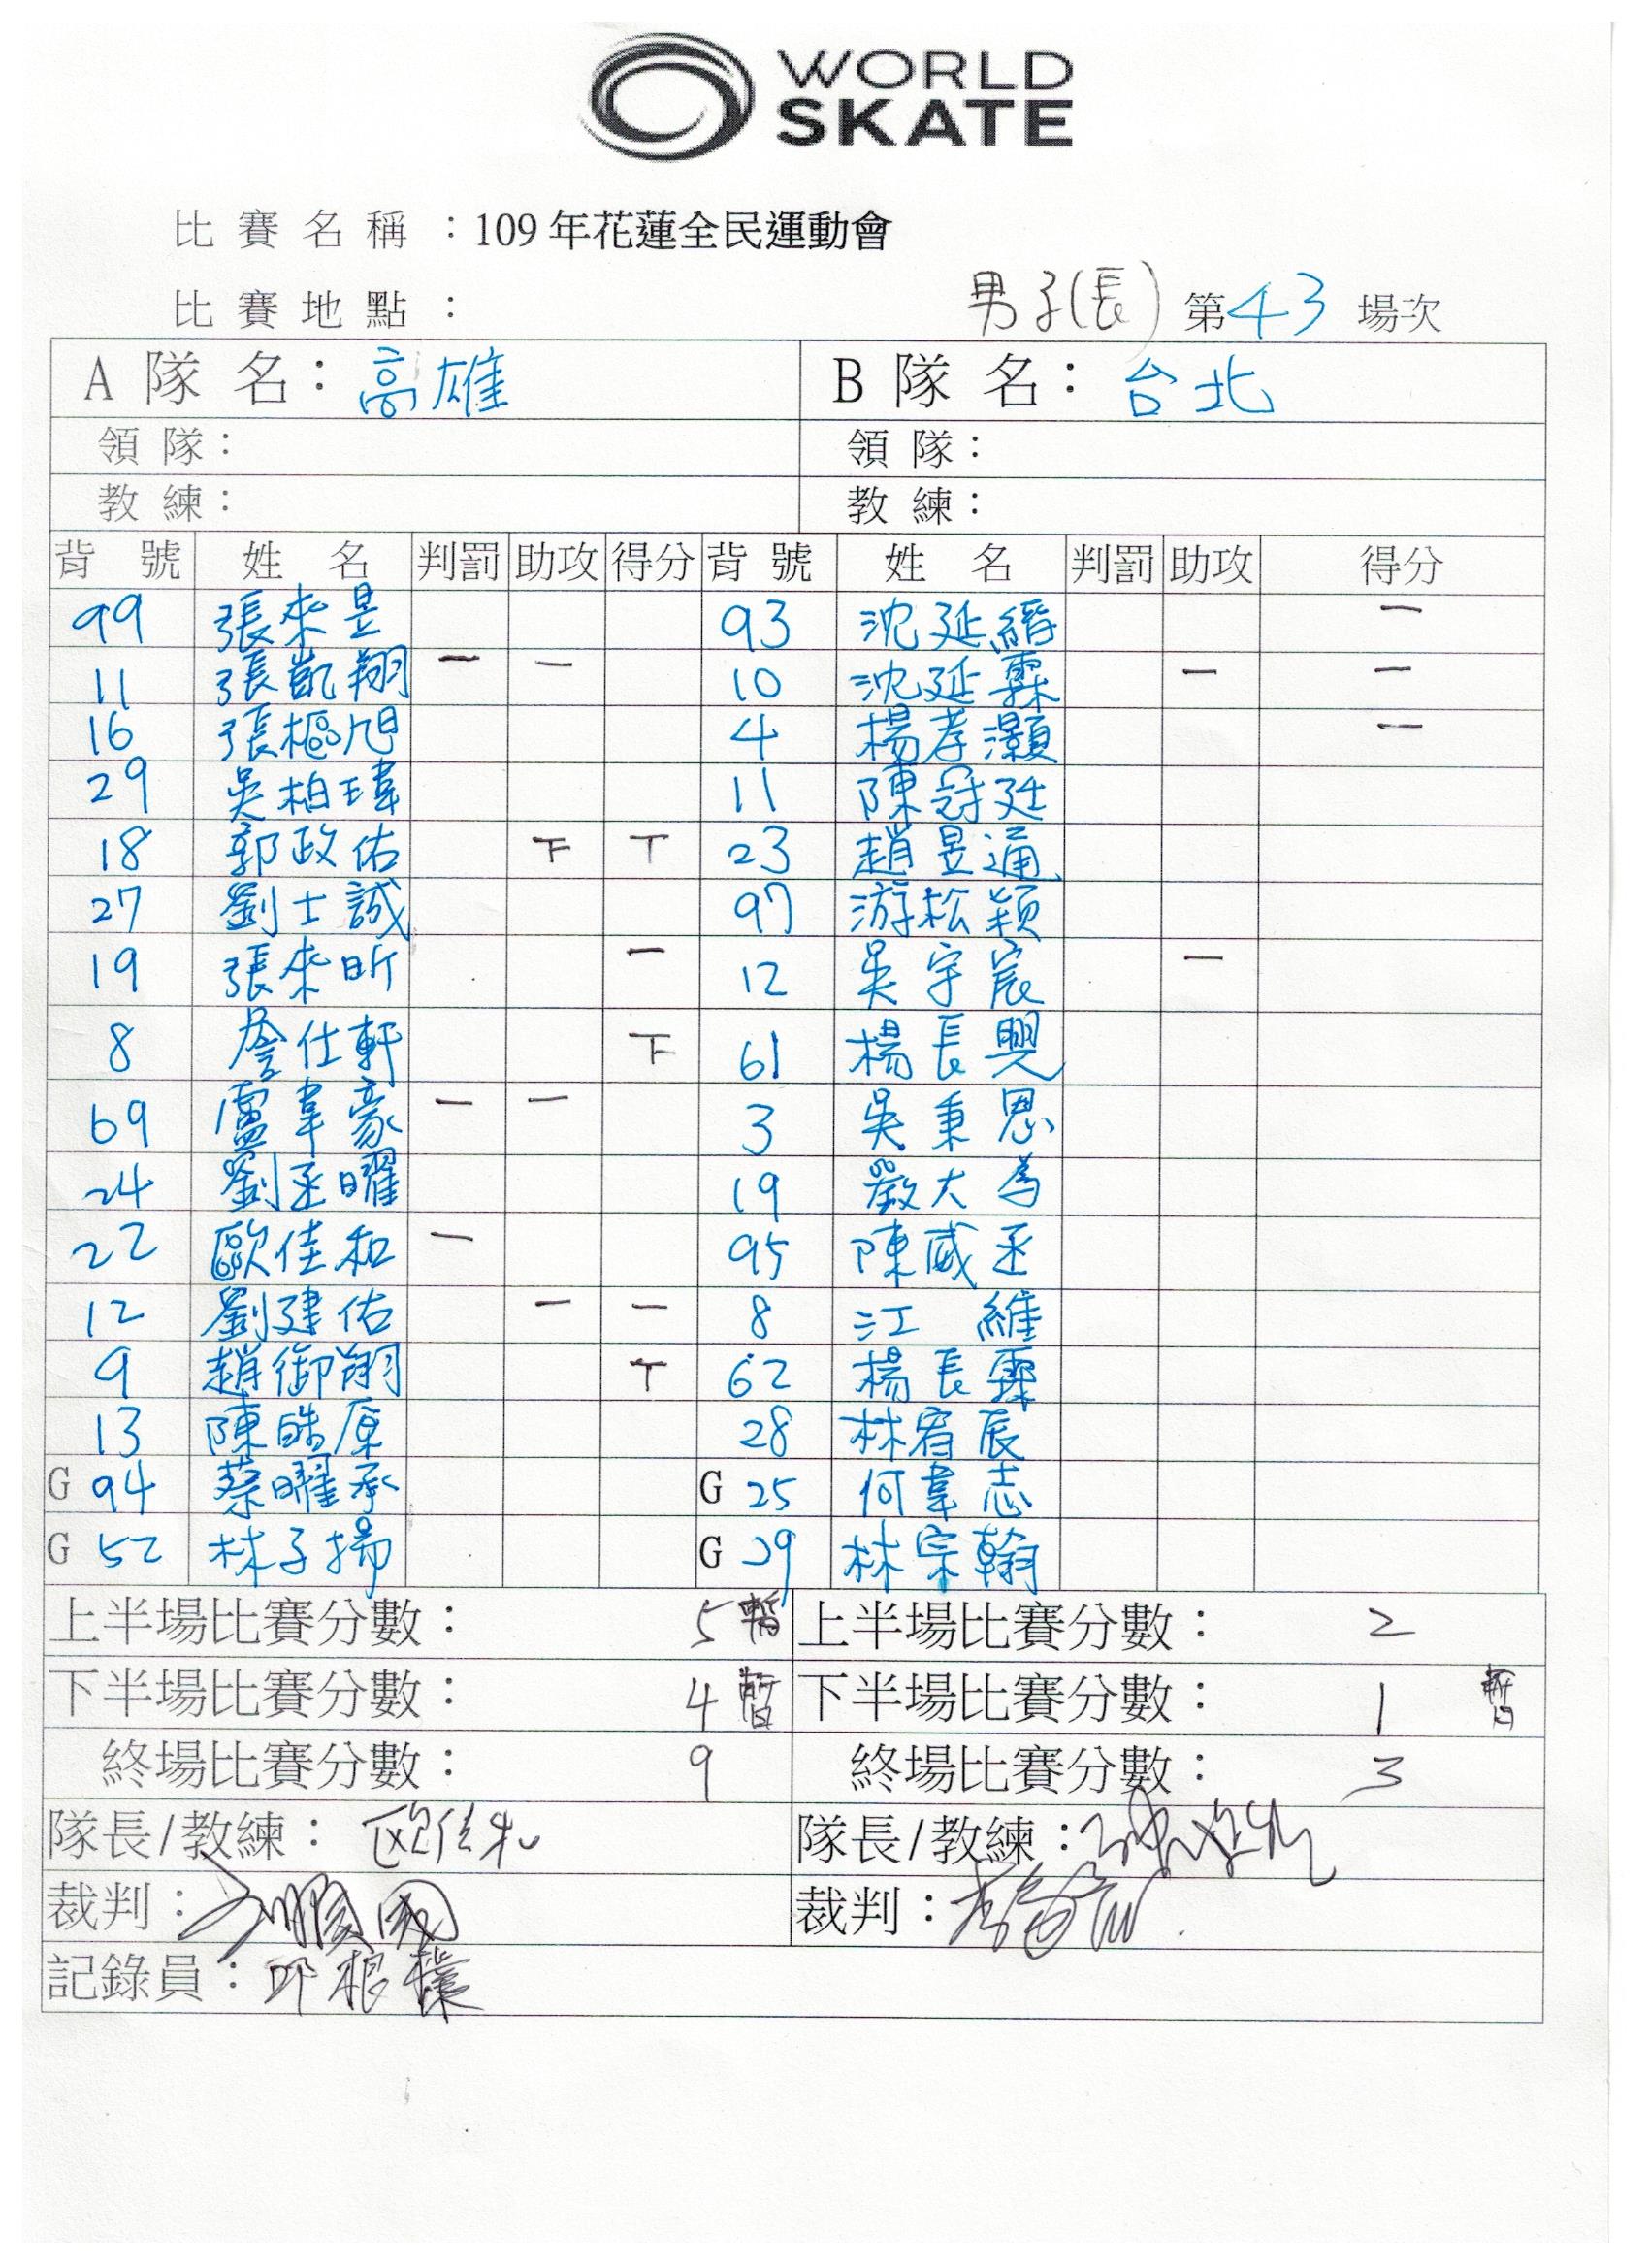 WORLD
SKATE
比賽名稱：109年花蓮全民運動會
比賽地點： 男子(長) 第43場次
A 隊 名：高雄 B 隊 名：台北
領 隊： 領 隊：
教 練： 教 練：
背 號 姓 名 判罰 助攻 得分 背 號 姓 名 判罰 助攻 得分
99 張來昱 93 沈延縉 一
11 張凱翔 一 一 10 沈延霖 一 一
16 張樞旭 4 楊孝灝 一
29 吳柏瑋 11 陳冠廷
18 郭政佑 下 丅 23 趙昱通
27 劉士誠 97 游松穎
19 張來昕 一 12 吳宇宸 一
8 詹仕軒 下 61 楊長興
69 盧韋豪 一 一 3 吳秉恩
24 劉丞曜 19 嚴大為
22 歐佳和 一 95 陳威丞
12 劉建佑 一 一 8 江 維
9 趙御翔 丅 62 楊長霖
13 陳皓原 28 林宥辰
G 94 蔡曜承 G 25 何韋志
G 52 林子揚 G 29 林宗翰
上半場比賽分數： 5 暫 上半場比賽分數： 2
下半場比賽分數： 4 暫 下半場比賽分數： 1 暫
終場比賽分數： 9 終場比賽分數： 3
隊長/教練：歐佳和 隊長/教練：
裁判： 裁判：
記錄員：邱根樸